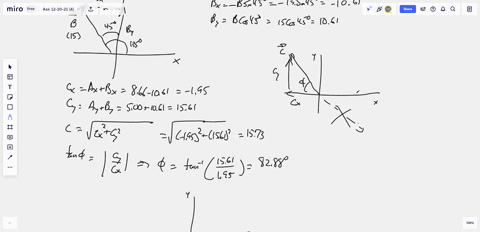 miro Asen 12-20-21 (4)
Share
Bx = -B sin45° = -15 sin45° = -10.61
B 45° By
By = B cos45° = 15 cos45° = 10.61
(15) 135°
x
C y
Cx = Ax + Bx = 8.66 - 10.61 = -1.95
Cy φ
Cy = Ay + By = 5.00 + 10.61 = 15.61
Cx x
C = √Cx² + Cy² = √(-1.95)² + (15.61)² = 15.73
tanφ = |Cy/Cx| ⇒ φ = tan⁻¹(15.61/1.95) = 82.88°
y